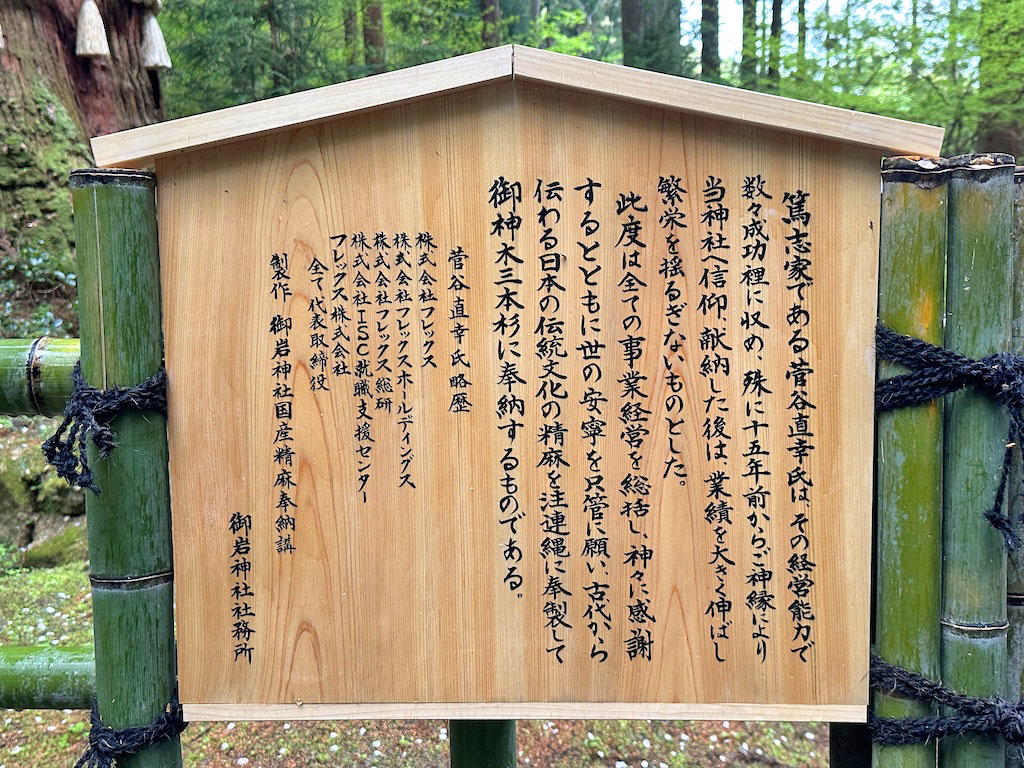 篤志家である菅谷直幸氏は、その経営能力で
数々成功裡に収め、殊に十五年前からご神縁により
当神社へ信仰、献納した後は、業績を大きく伸ばし
繁栄を揺るぎないものとした。
此度は全ての事業経営を総括し、神々に感謝
するとともに世の安寧を只管に願い、古代から
伝わる日本の伝統文化の精麻を注連縄に奉製して
御神木三本杉に奉納するものである。
菅谷直幸氏略歴
株式会社フレックス
株式会社フレックスホールディングス
株式会社フレックス総研
株式会社ISC就職支援センター
フレックス株式会社
全て代表取締役
製作 御岩神社国産精麻奉納講
御岩神社社務所